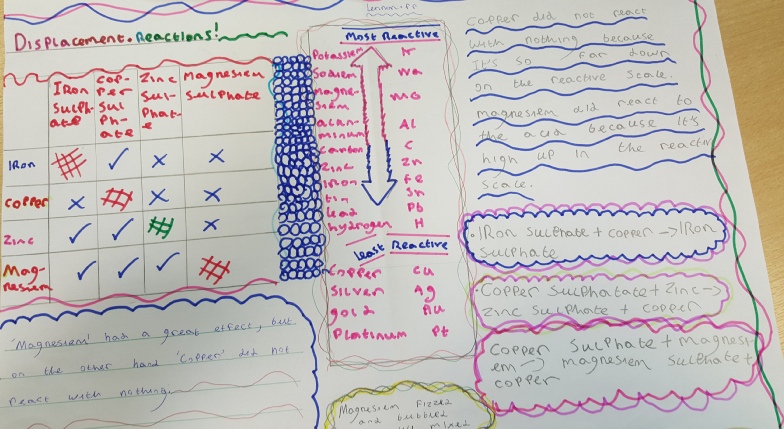 Displacement. Reactions!
IRon
Sulph-
ate
Cop-
per
Sul
Ph-
ate
Zinc
Sul-
Phat-
e
Magnesium
Sulphate
IRon
Copper
Zinc
Mag-
nesium
'Magnesiem' had a great effect, but
on the other hand 'Copper' did not
react with nothing.
Most Reactive
Potassium K
Sodium Na
magne-
sium MG
Al
Carbon C
Zinc Zn
IRon Fe
tin Sn
lead Pb
hydrogen H
least Reactive
Copper Cu
Silver Ag
gold Au
Platinum Pt
Magnesium Fizzed
and bubbled
mixed
Copper did not react
with nothing because
It's so far down
on the reactive scale.
magnesiem did react to
the acid because it's
high up in the reactiv
scale.
.IRon Sulphate + copper → IRon
Sulphate
.Copper Sulphatate + Zinc →
zinc Sulphate + copper
Copper Sulphate + magnesi-
em → magnesiem Sulphate +
copper